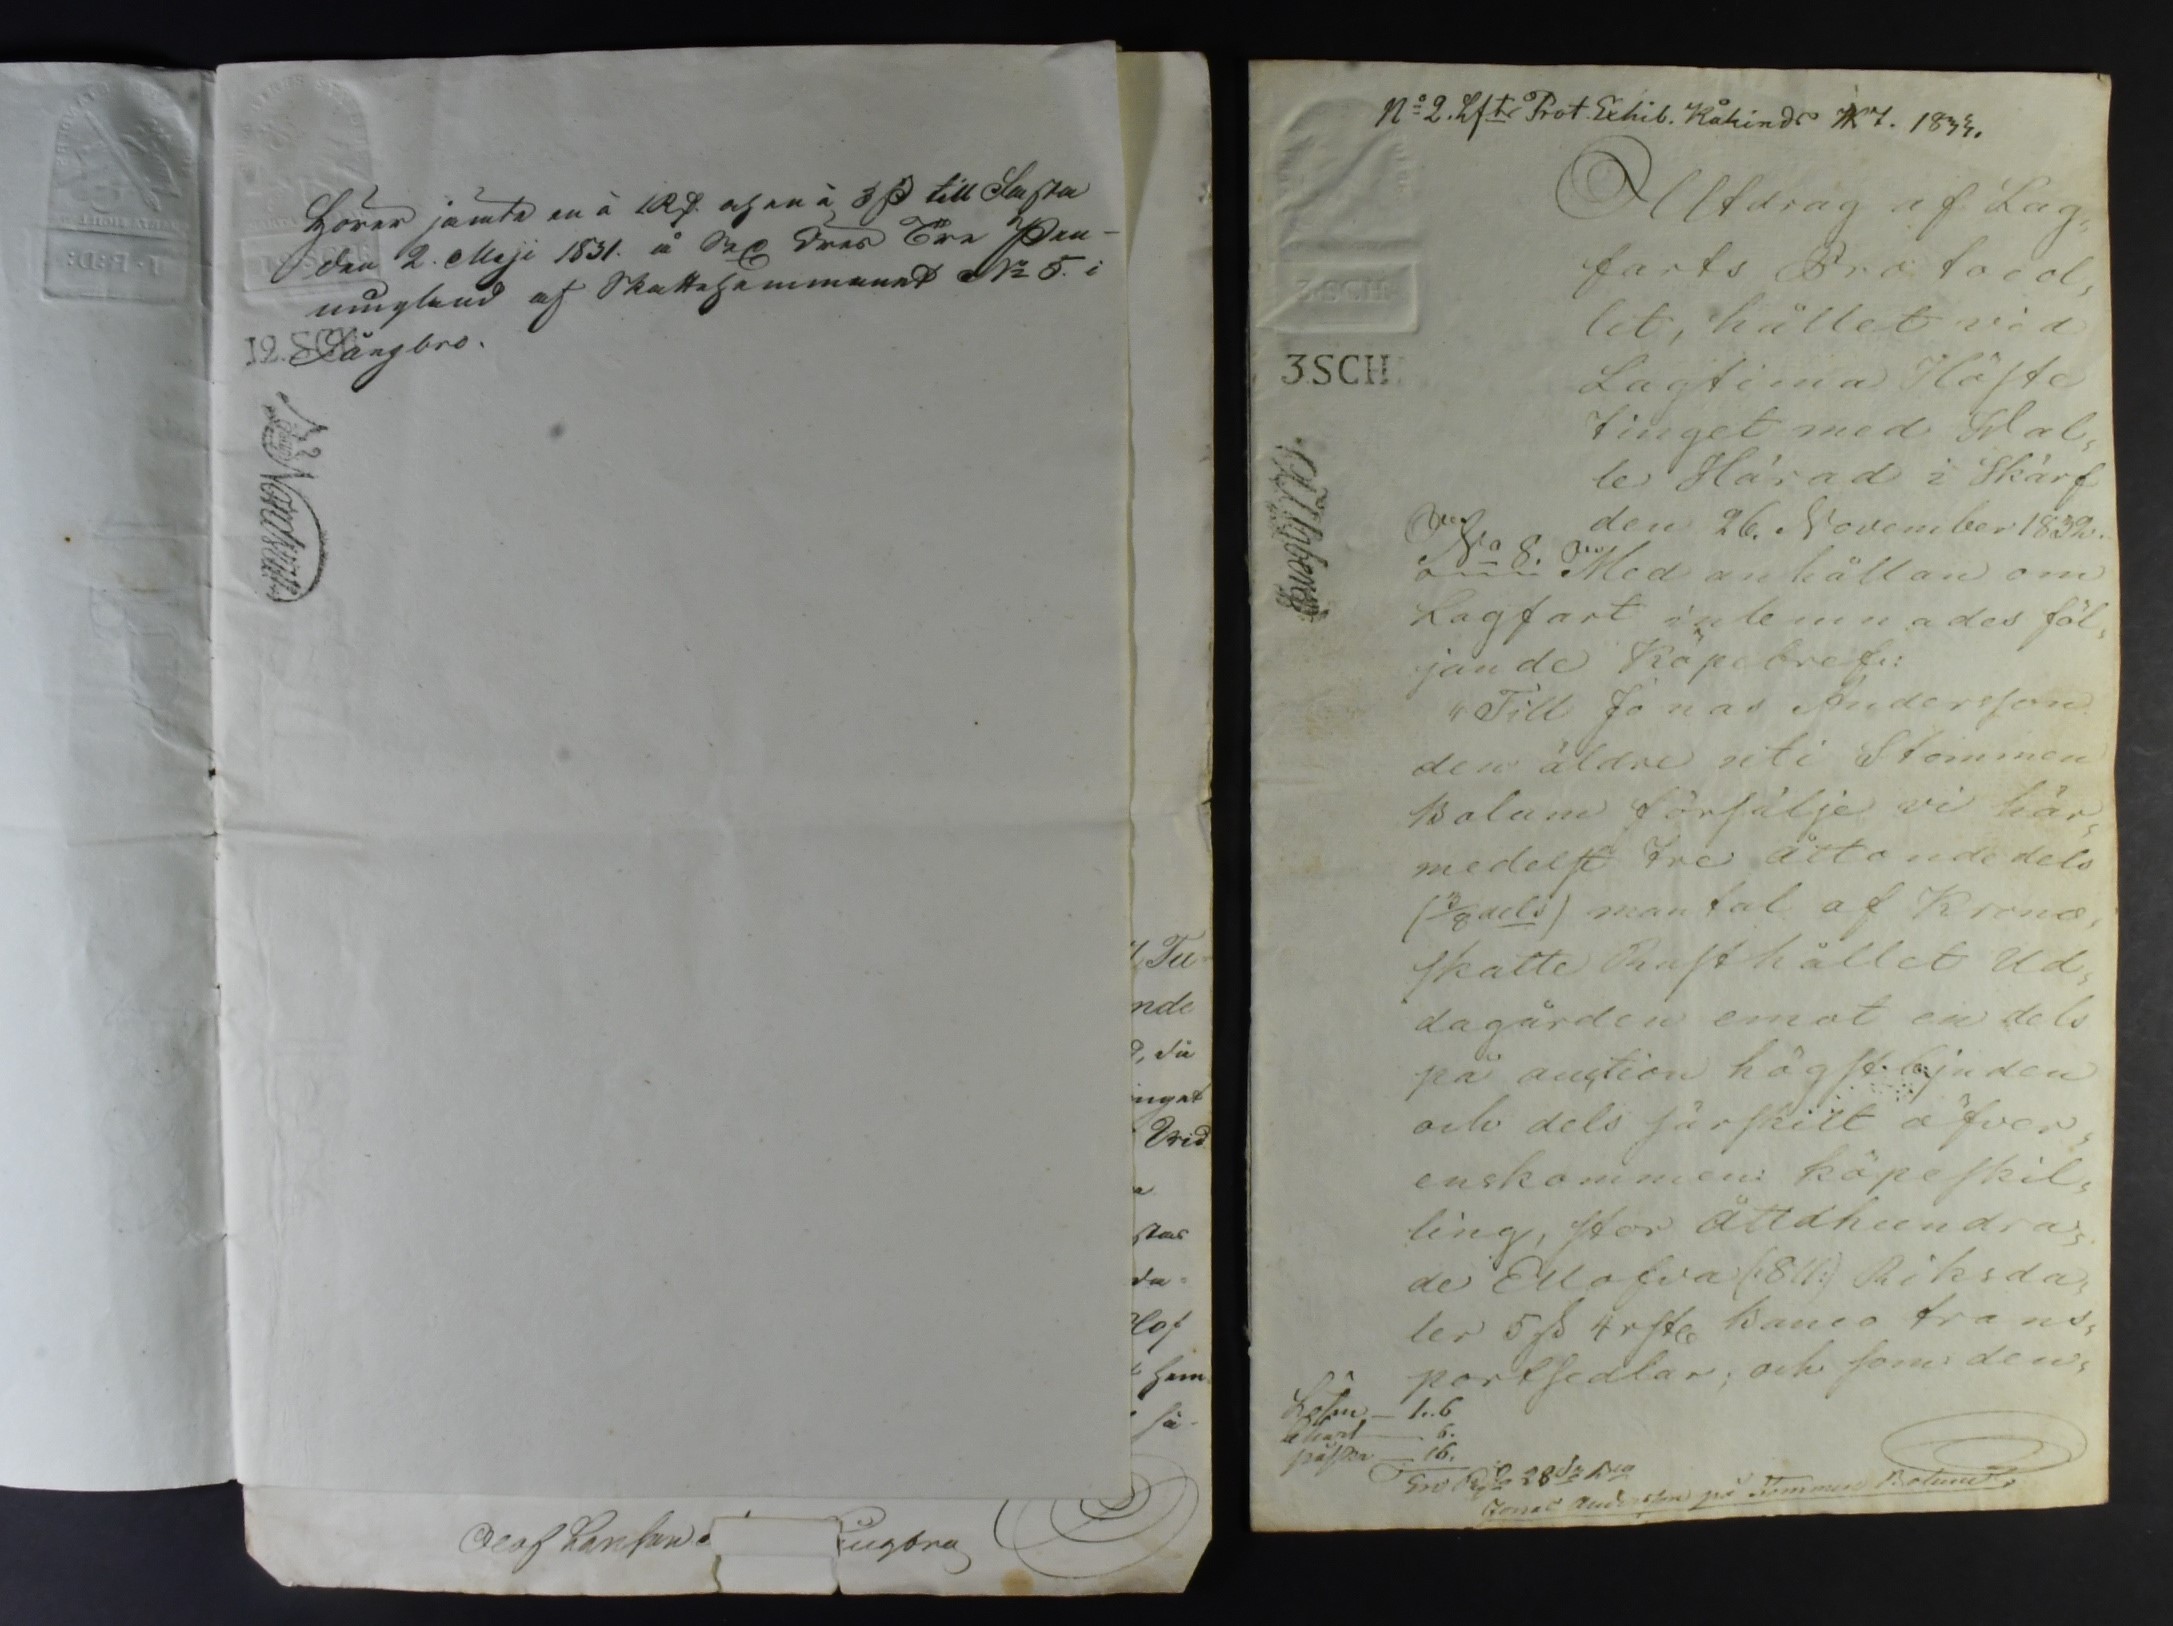 Hörer jämte en à 1 Rd. och en à 3 ß till Fasta
den 2. Maji 1831. å Sex Öres Öre Pen-
ningland af Skattehemmanet No 5. i
12. SCH
Långbro.
Nordwall
Tu
nde
då
inget
Wid
stas
da-
Olof
hem
så-
Olof Larsson
Långbro
No 2. Hfte Prot. Exhib. Kåkinds HT. 1833.
Utdrag af Lag,
farts Protocol,
let, hållet vid
3.SCH
Lagtima Höste
tinget med Wal,
le Härad i Skärf
den 26. November 1832.
No 8. Med anhållan om
Lagfart inlemnades föl,
jande Köpebref:
"Till Jonas Andersson
den äldre uti Stommen
Bolum försälje vi här,
medelst tre åttondedels
(3/8 dels) mantal af Krono,
skatte Rusthållet Ud,
dagården emot en dels
på auction högstbjuden
och dels särskilt öfver,
enskommen köpeskil,
ling, stor Åttahundra,
de Ellofva (:811:) Riksda,
ler 5 ß 4 rste Banco trans,
portsedlar; och som den,
Lösen — 1..6
Chart — 6.
påska — 16.
Jonas Andersson på Stommen Bolum